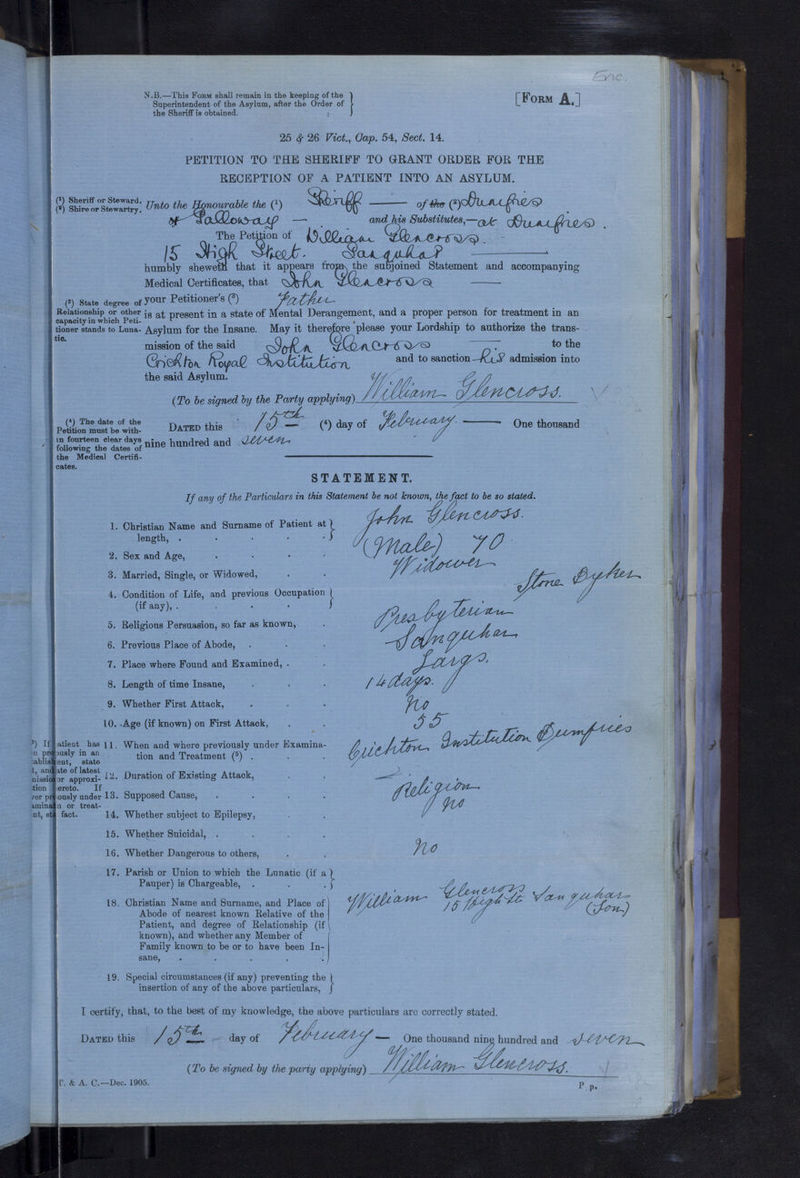 Enc.
N.B.—This Form shall remain in the keeping of the
Superintendent of the Asylum, after the Order of
the Sheriff is obtained.
[Form A.]
25 & 26 Vict., Cap. 54, Sect. 14.
PETITION TO THE SHERIFF TO GRANT ORDER FOR THE
RECEPTION OF A PATIENT INTO AN ASYLUM.
(¹) Sheriff or Steward.
(²) Shire or Stewartry.
Unto the Honourable the (¹) Sheriff — of the (²) Dumfries
& Galloway — and his Substitutes,— at Dumfries.
The Petition of William Glencross.
15 High Street. Sanquhar —
humbly sheweth that it appears from the subjoined Statement and accompanying
Medical Certificates, that John Glencross —
(³) State degree of
Relationship or other
capacity in which Peti-
tioner stands to Luna-
tic.
your Petitioner's (³) Father
is at present in a state of Mental Derangement, and a proper person for treatment in an
Asylum for the Insane. May it therefore please your Lordship to authorize the trans-
mission of the said John Glencross — to the
Crichton Royal Institution and to sanction his admission into
the said Asylum.
(To be signed by the Party applying) William Glencross.
(⁴) The date of the
Petition must be with-
in fourteen clear days
following the dates of
the Medical Certifi-
cates.
Dated this 15th (⁴) day of February — One thousand
nine hundred and seven
STATEMENT.
If any of the Particulars in this Statement be not known, the fact to be so stated.
1. Christian Name and Surname of Patient at
length, . John Glencross.
2. Sex and Age, (Male) 70
3. Married, Single, or Widowed, Widower
4. Condition of Life, and previous Occupation
(if any), . Stone Dyker
5. Religious Persuasion, so far as known, Presbyterian
6. Previous Place of Abode, . Sanquhar
7. Place where Found and Examined, . Largs.
8. Length of time Insane, 14 days.
9. Whether First Attack, No
10. Age (if known) on First Attack, 55
) If atient has
n pre ously in an
ablish ent, state
t, and ate of latest
nission or approxi-
tion ereto. If
ver pr ously under
amina n or treat-
nt, st fact.
11. When and where previously under Examina-
tion and Treatment (⁵) . Crichton Institution Dumfries
12. Duration of Existing Attack, —
13. Supposed Cause, Religion
14. Whether subject to Epilepsy, no
15. Whether Suicidal, .
16. Whether Dangerous to others, No
17. Parish or Union to which the Lunatic (if a
Pauper) is Chargeable, .
18. Christian Name and Surname, and Place of
Abode of nearest known Relative of the
Patient, and degree of Relationship (if
known), and whether any Member of
Family known to be or to have been In-
sane, .
William Glencross
15 High St Sanquhar
(Son)
19. Special circumstances (if any) preventing the
insertion of any of the above particulars,
I certify, that, to the best of my knowledge, the above particulars are correctly stated.
Dated this 15th day of February — One thousand nine hundred and seven
(To be signed by the party applying) William Glencross.
. & A. C.—Dec. 1905.
P p.